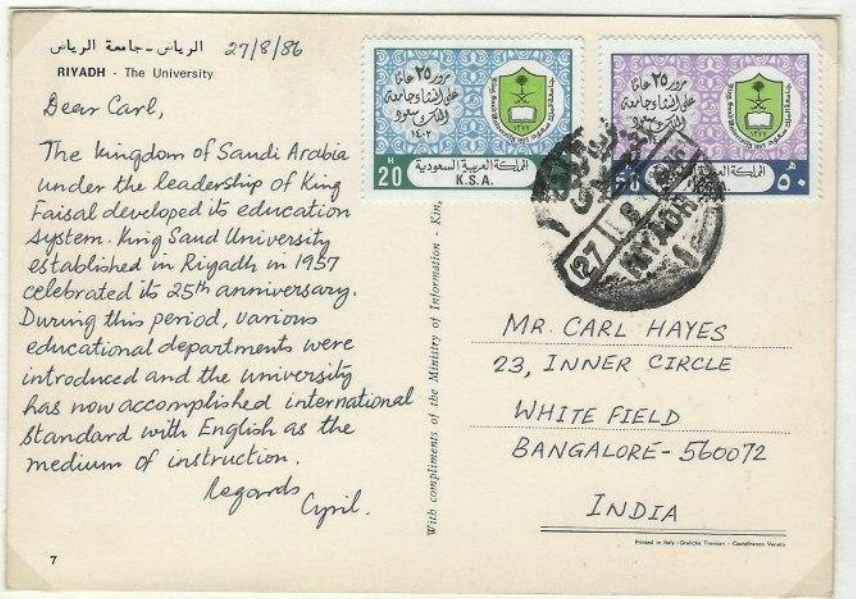 الرياض - جامعة الرياض 27/8/86
RIYADH - The University
Dear Carl,
The kingdom of Saudi Arabia
under the leadership of King
Faisal developed its education
system. King Saud University
established in Riyadh in 1957
celebrated its 25th anniversary.
During this period, various
educational departments were
introduced and the university
has now accomplished international
standard with English as the
medium of instruction.
Regards
Cyril.
7
With compliments of the Ministry of Information - Kin
مرور ٢٥ عامًا
على إنشاء جامعة
الملك سعود
١٤٠٢
H
20
المملكة العربية السعودية
K.S.A.
مرور ٢٥ عامًا
على إنشاء جامعة
الملك سعود
المملكة العربية السعودية
٥٠
27
8
RIYADH
MR. CARL HAYES
23, INNER CIRCLE
WHITE FIELD
BANGALORE - 560072
INDIA
Printed in Italy - Grafiche Trevisan - Castelfranco Veneto